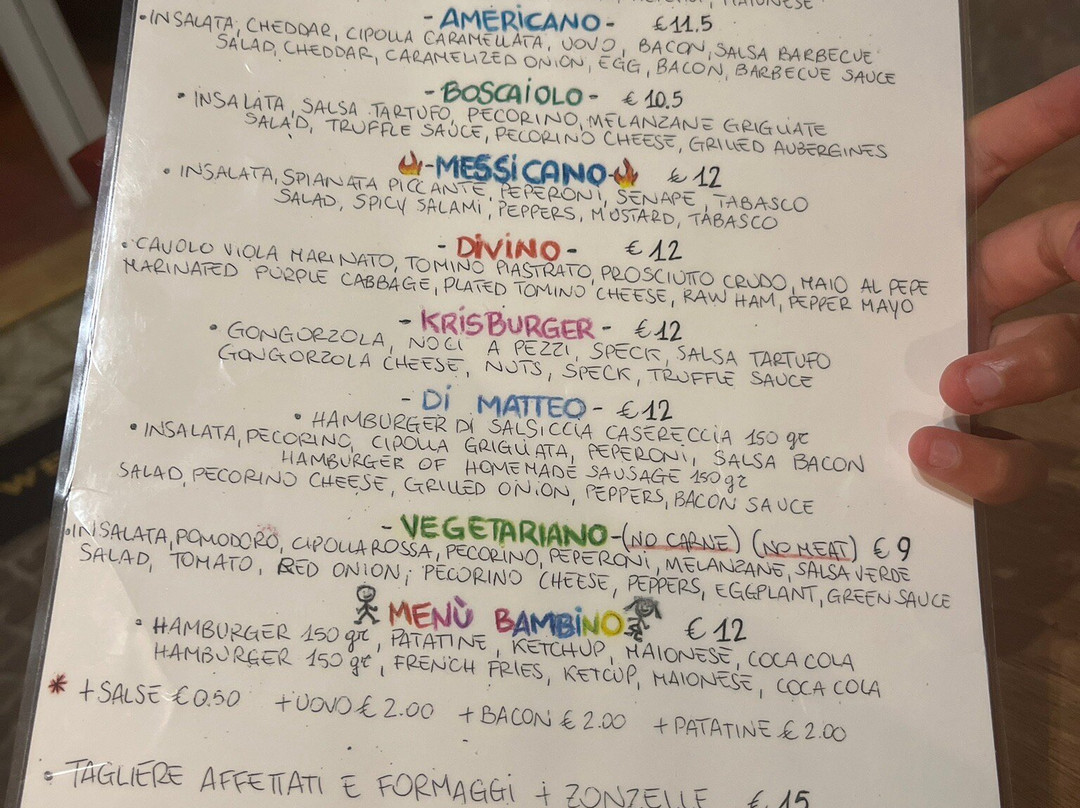 MAIONESE
- AMERICANO - €11.5
• INSALATA, CHEDDAR, CIPOLLA CARAMELLATA, UOVO, BACON, SALSA BARBECUE
SALAD, CHEDDAR, CARAMELIZED ONION, EGG, BACON, BARBECUE SAUCE
- BOSCAIOLO - € 10.5
• INSALATA, SALSA TARTUFO, PECORINO, MELANZANE GRIGLIATE
SALAD, TRUFFLE SAUCE, PECORINO CHEESE, GRILLED AUBERGINES
- MESSICANO - € 12
• INSALATA, SPIANATA PICCANTE, PEPERONI, SENAPE, TABASCO
SALAD, SPICY SALAMI, PEPPERS, MUSTARD, TABASCO
- DIVINO - € 12
• CAVOLO VIOLA MARINATO, TOMINO PIASTRATO, PROSCIUTTO CRUDO, MAIO AL PEPE
MARINATED PURPLE CABBAGE, PLATED TOMINO CHEESE, RAW HAM, PEPPER MAYO
- KRISBURGER - €12
• GONGORZOLA, NOCI A PEZZI, SPECK, SALSA TARTUFO
GONGORZOLA CHEESE, NUTS, SPECK, TRUFFLE SAUCE
- DI MATTEO - €12
• HAMBURGER DI SALSICCIA CASERECCIA 150 gr
• INSALATA, PECORINO, CIPOLLA GRIGLIATA, PEPERONI, SALSA BACON
HAMBURGER OF HOMEMADE SAUSAGE 150 gr
SALAD, PECORINO CHEESE, GRILLED ONION, PEPPERS, BACON SAUCE
- VEGETARIANO - (NO CARNE) (NO MEAT) € 9
• INSALATA, POMODORO, CIPOLLA ROSSA, PECORINO, PEPERONI, MELANZANE, SALSA VERDE
SALAD, TOMATO, RED ONION, PECORINO CHEESE, PEPPERS, EGGPLANT, GREEN SAUCE
MENÙ BAMBINO € 12
• HAMBURGER 150 gr, PATATINE, KETCHUP, MAIONESE, COCA COLA
HAMBURGER 150 gr, FRENCH FRIES, KETCUP, MAIONESE, COCA COLA
* + SALSE €0.50 + UOVO € 2.00 + BACON € 2.00 + PATATINE € 2.00
• TAGLIERE AFFETTATI E FORMAGGI + ZONZELLE € 15